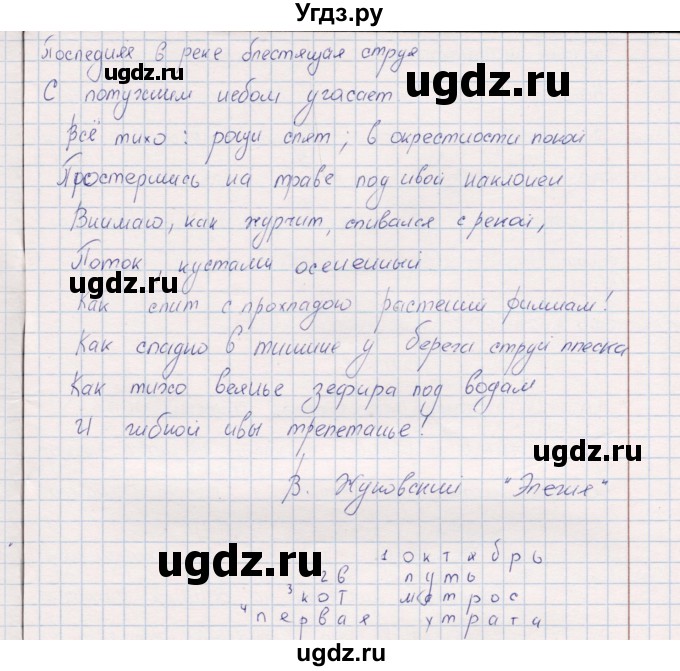 Угдз.ру
Последняя в реке блестящая струя
ugdz.ru
ugdz.ru
С потухшим небом угасает
Всё тихо: рощи спят; в окрестности покой
Простершись на траве под ивой наклонен
Внимаю, как журчит, сливался с рекой,
Поток, кустами осененный
ugdz.ru
ugdz.ru
Как слит с прохладою растений филиам!
Как сладно в тишине у берега струй плеска
Как тихо веянье зефира под водам
И гибкой ивы трепетанье!
ugdz.ru
В. Жуковский "Элегия"
ugdz.ru
1 октябрь
2 в путь
3 кот матрос
4 первая утрата
ugdz.ru
ugdz.ru